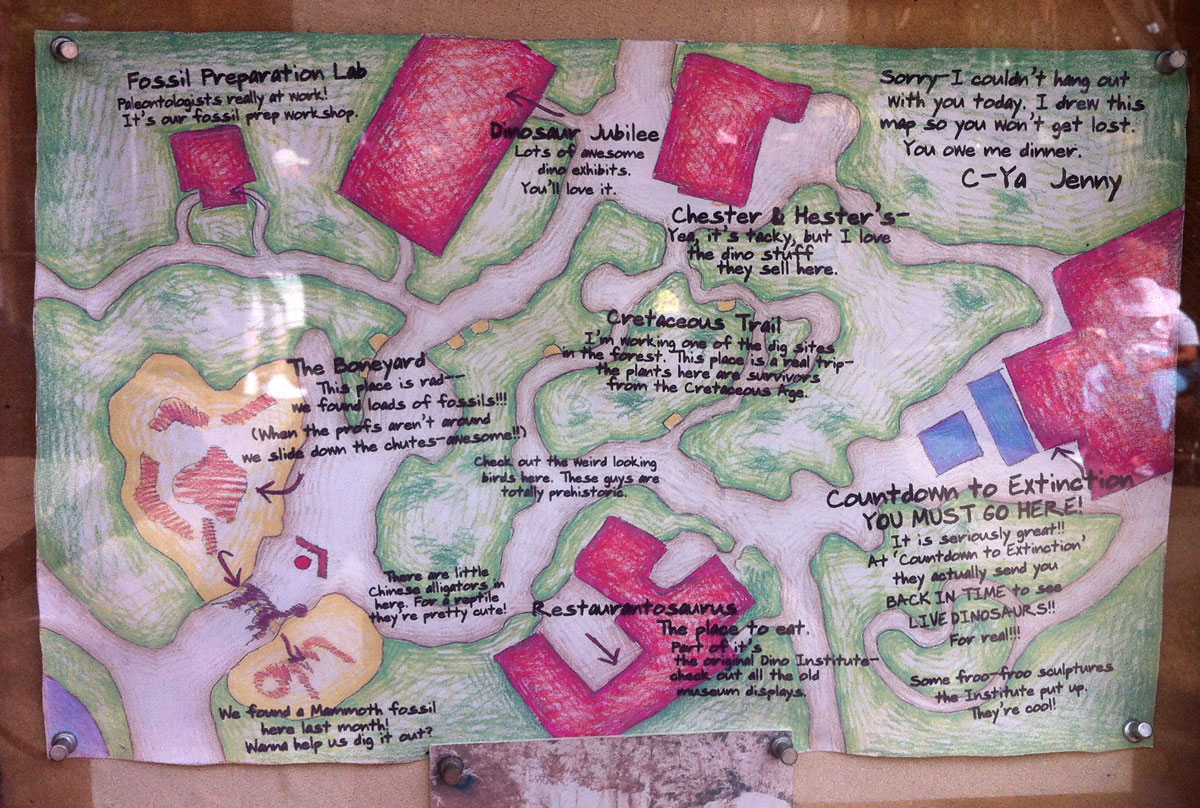 Fossil Preparation Lab
Paleontologists really at work!
It's our fossil prep workshop.
Dinosaur Jubilee
Lots of awesome
dino exhibits.
You'll love it.
Sorry-I couldn't hang out
with you today. I drew this
map so you won't get lost.
You owe me dinner.
C-Ya Jenny
Chester & Hester's-
Yea, it's tacky, but I love
the dino stuff
they sell here.
Cretaceous Trail
I'm working one of the dig sites
in the forest. This place is a real trip-
the plants here are survivors
from the Cretaceous Age.
The Boneyard
This place is rad---
we found loads of fossils!!!
(When the profs aren't around
we slide down the chutes-awesome!!)
Check out the weird looking
birds here. These guys are
totally prehistoric.
Countdown to Extinction
YOU MUST GO HERE!
It is seriously great!!
At 'Countdown to Extinction'
they actually send you
BACK IN TIME to see
LIVE DINOSAURS!!
For real!!!
There are little
Chinese alligators in
here. For a reptile
they're pretty cute!
Restaurantosaurus
The place to eat.
Part of it's
the original Dino Institute-
check out all the old
museum displays.
Some froo-froo sculptures
the Institute put up.
They're cool!
We found a Mammoth fossil
here last month!
Wanna help us dig it out?